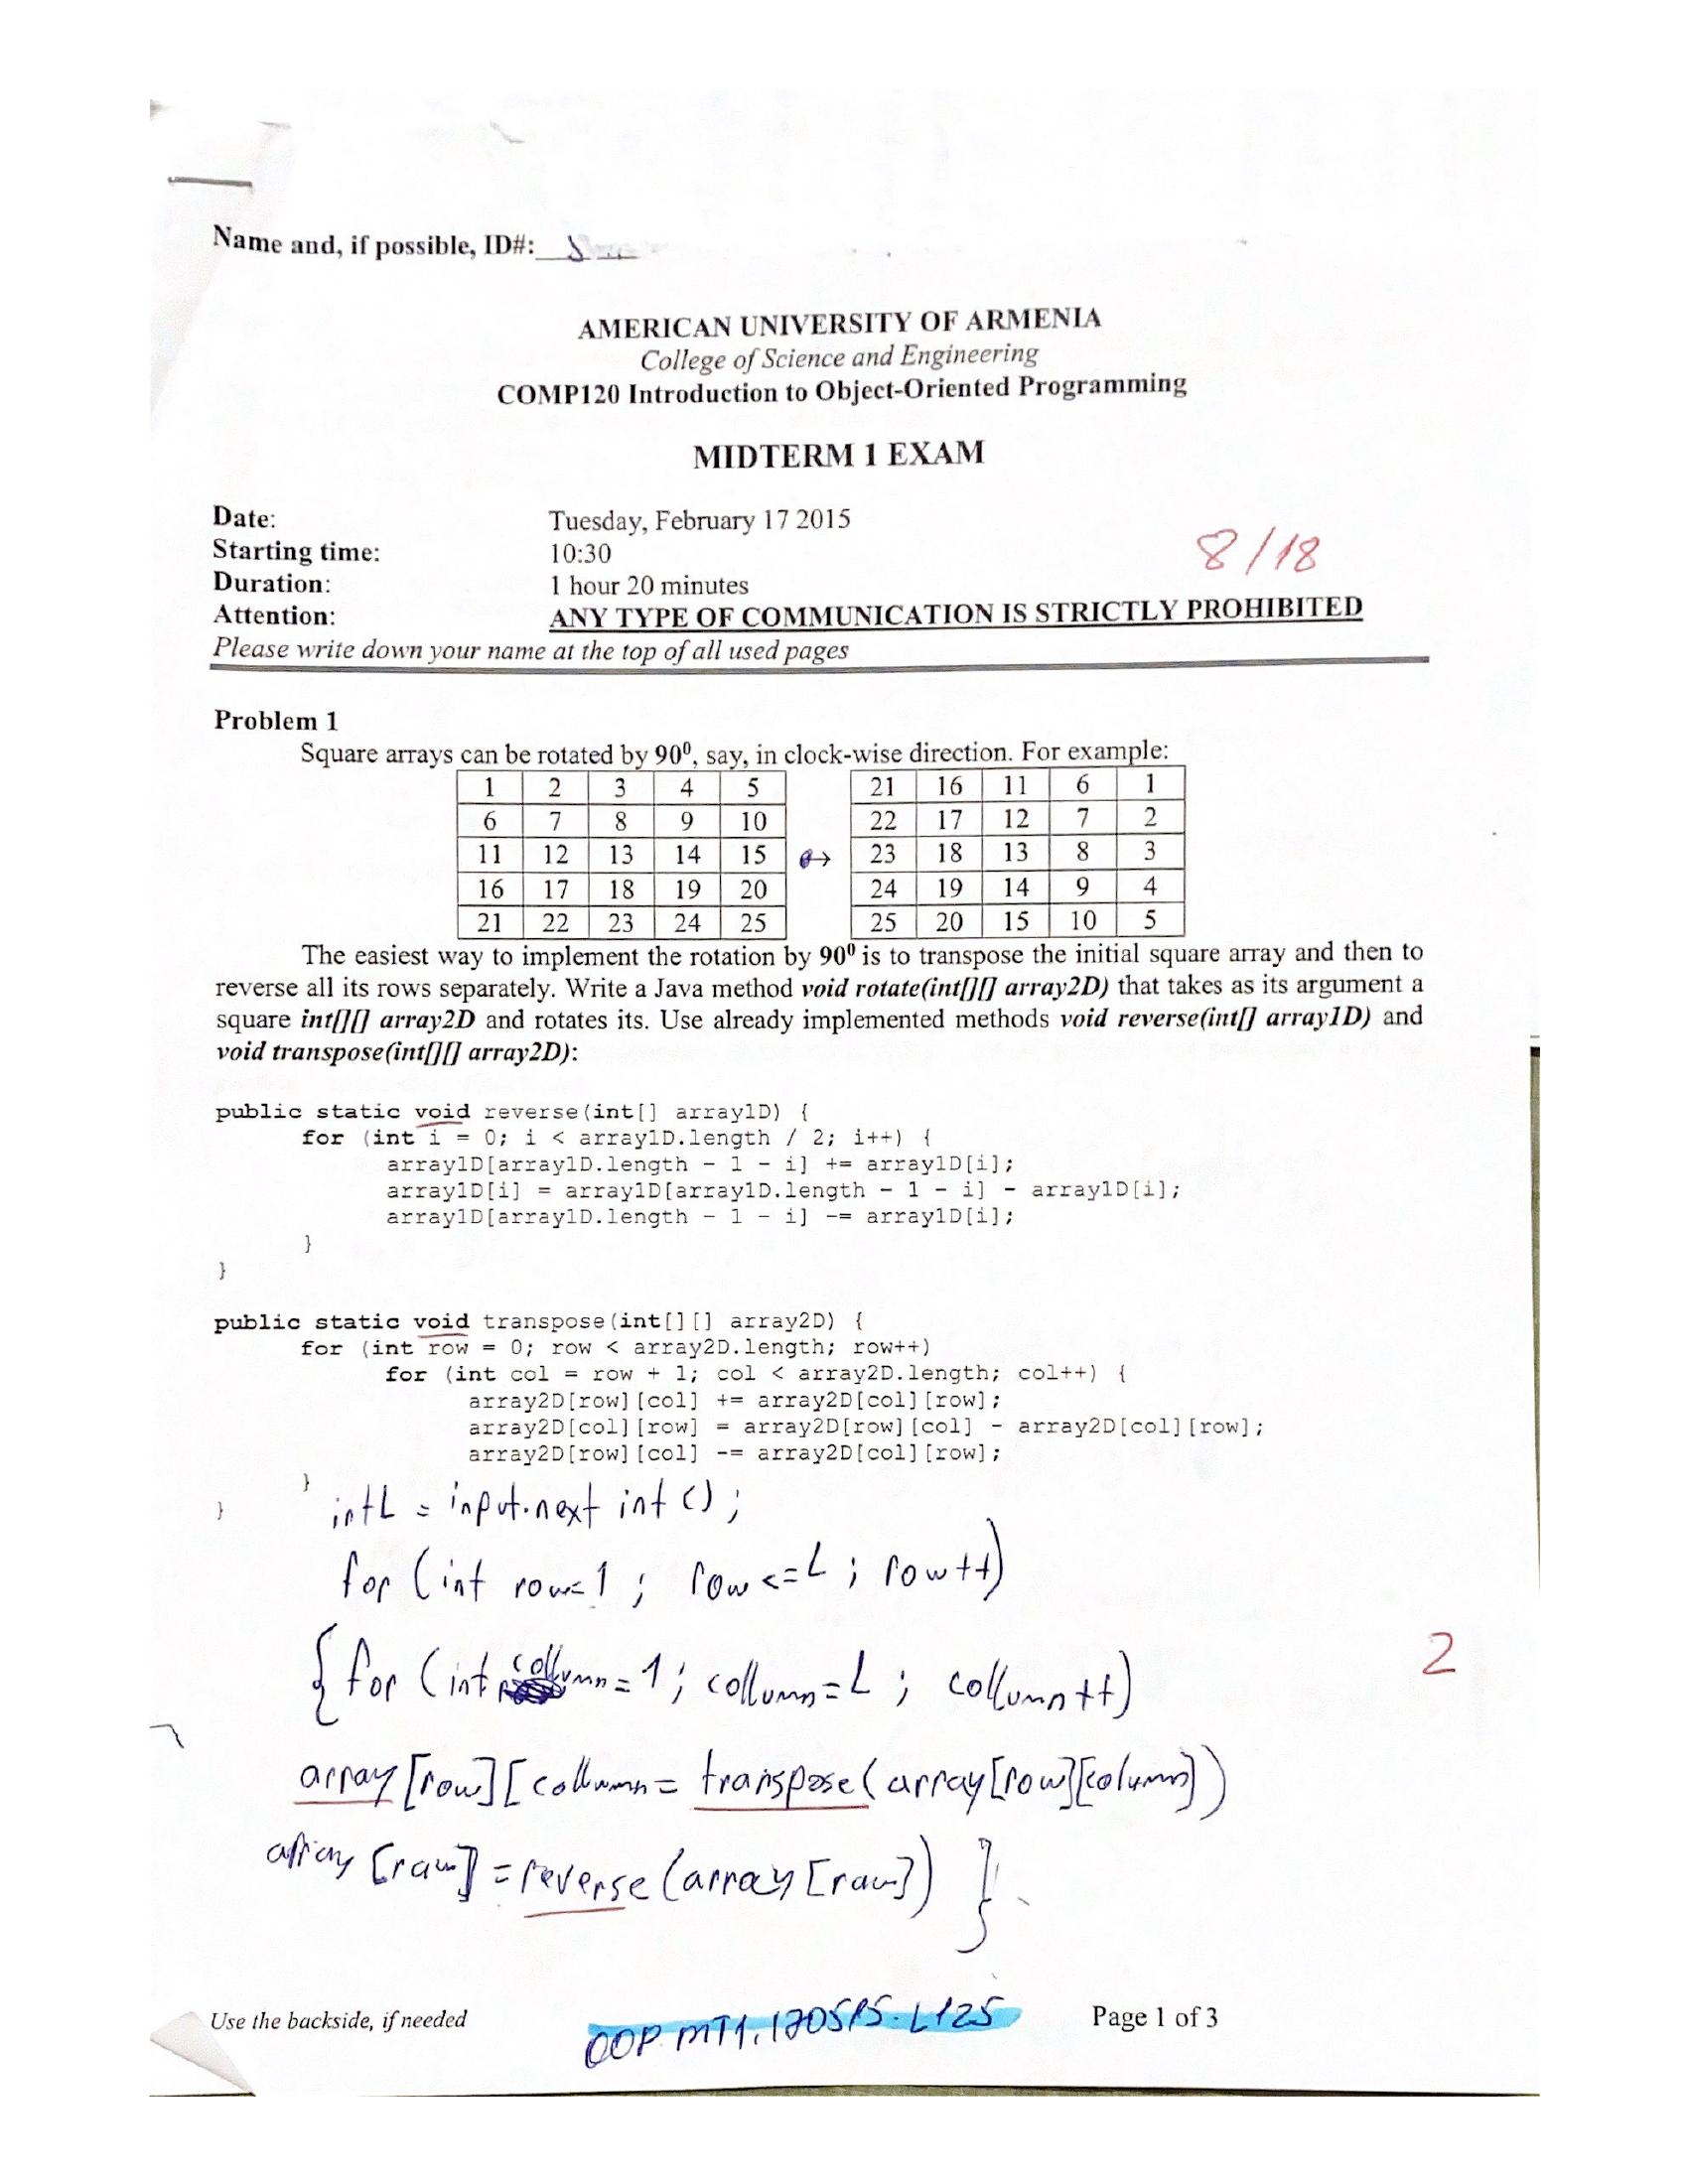 Name and, if possible, ID#:
AMERICAN UNIVERSITY OF ARMENIA
College of Science and Engineering
COMP120 Introduction to Object-Oriented Programming
MIDTERM 1 EXAM
Date: Tuesday, February 17 2015
Starting time: 10:30
8/18
Duration: 1 hour 20 minutes
Attention: ANY TYPE OF COMMUNICATION IS STRICTLY PROHIBITED
Please write down your name at the top of all used pages
Problem 1
Square arrays can be rotated by 90⁰, say, in clock-wise direction. For example:
1 2 3 4 5 21 16 11 6 1
6 7 8 9 10 22 17 12 7 2
11 12 13 14 15 ↔ 23 18 13 8 3
16 17 18 19 20 24 19 14 9 4
21 22 23 24 25 25 20 15 10 5
The easiest way to implement the rotation by 90⁰ is to transpose the initial square array and then to
reverse all its rows separately. Write a Java method void rotate(int[][] array2D) that takes as its argument a
square int[][] array2D and rotates its. Use already implemented methods void reverse(int[] array1D) and
void transpose(int[][] array2D):
public static void reverse(int[] array1D) {
for (int i = 0; i < array1D.length / 2; i++) {
array1D[array1D.length - 1 - i] += array1D[i];
array1D[i] = array1D[array1D.length - 1 - i] - array1D[i];
array1D[array1D.length - 1 - i] -= array1D[i];
}
}
public static void transpose(int[][] array2D) {
for (int row = 0; row < array2D.length; row++)
for (int col = row + 1; col < array2D.length; col++) {
array2D[row][col] += array2D[col][row];
array2D[col][row] = array2D[row][col] - array2D[col][row];
array2D[row][col] -= array2D[col][row];
}
}
int L = input.next int ();
for (int row=1 ; row <= L ; row++)
{ for (int collumn = 1 ; collumn = L ; collumn++)
2
array [row] [collumn = transpose( array [row][column])
array [raw] = reverse (array [raw]) }
Use the backside, if needed
OOP.MT1.170515.L125
Page 1 of 3